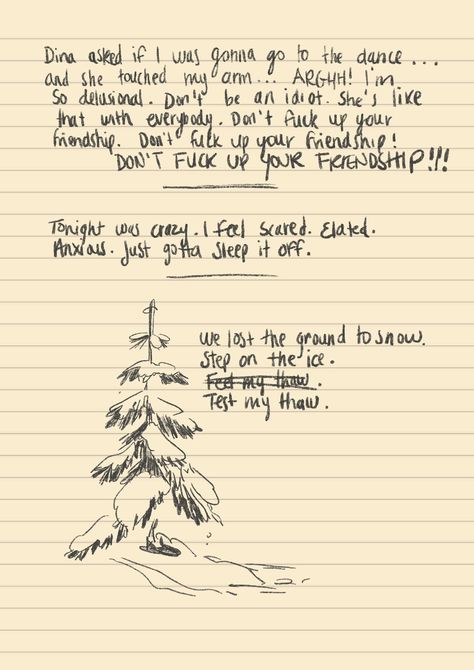 Dina asked if I was gonna go to the dance...
and she touched my arm... ARGHH! I'm
so delusional. Don't be an idiot. She's like
that with everybody. Don't fuck up your
friendship. Don't fuck up your friendship!
DON'T FUCK UP YOUR FRIENDSHIP!!!
Tonight was crazy. I feel scared. Elated.
Anxious. Just gotta sleep it off.
We lost the ground to snow.
Step on the ice.
Feel my thaw.
Test my thaw.